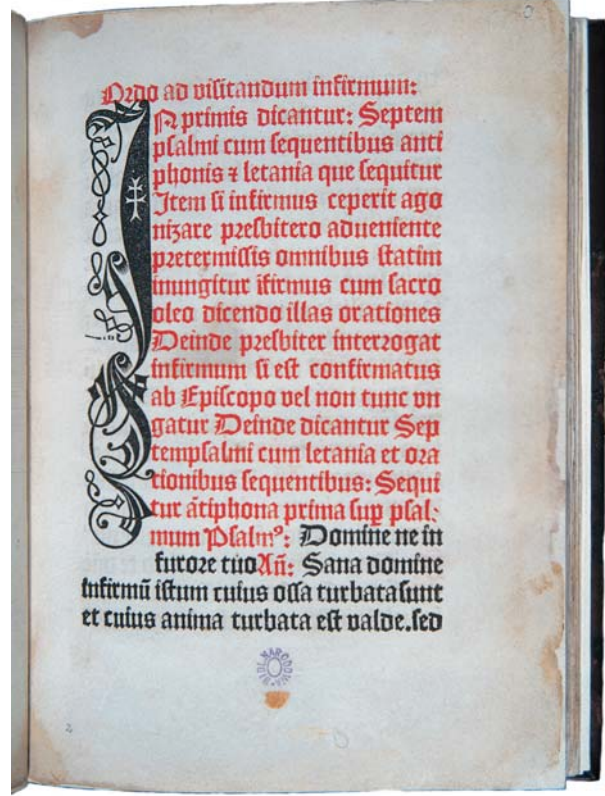 Ordo ad visitandum infirmum:
IN primis dicantur: Septem
psalmi cum sequentibus anti
phonis ⁊ letania que sequitur
Item si infirmus ceperit ago
nizare presbitero adueniente
pretermissis omnibus statim
inungitur ifirmus cum sacro
oleo dicendo illas orationes
Deinde presbiter interrogat
infirmum si est confirmatus
ab Episcopo vel non tunc vn
gatur Deinde dicantur Sep
tempsalmi cum letania et ora
tionibus sequentibus: Sequi
tur ātiphona prima suꝑ psal:
mum Psalmꝰ: Domine ne in
furore tuo Añ: Sana domine
infirmū istum cuius ossa turbata sunt
et cuius anima turbata est valde. sed
2